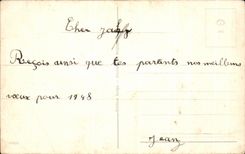 Cher
Reçois ainsi que tes parents nos meilleurs
vœux pour 1948
Jean